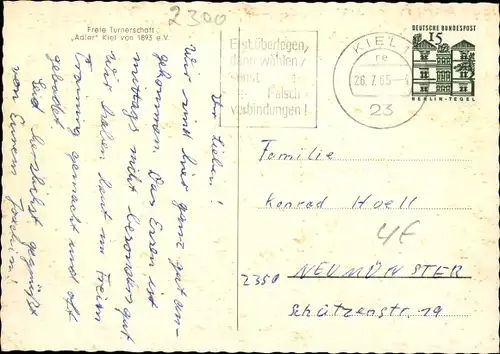 2300
Freie Turnerschaft
„Adler" Kiel von 1893 e.V.
Ihr Lieben!
Wir sind hier ganz gut an-
gekommen. Das Essen ist
mittags nicht besonders gut.
Wir haben heut im Freien
Training gemacht und oft
gebadet.
Seid herzlichst gegrüßt
von Eurem Joachim.
Erst überlegen,
dann wählen,
sonst
Falsch-
verbindungen!
KIEL 1
26.7.65
23
DEUTSCHE BUNDESPOST
15
BERLIN-TEGEL
Familie
Konrad Huell
4€
2350 NEUMÜNSTER
Schützenstr. 19